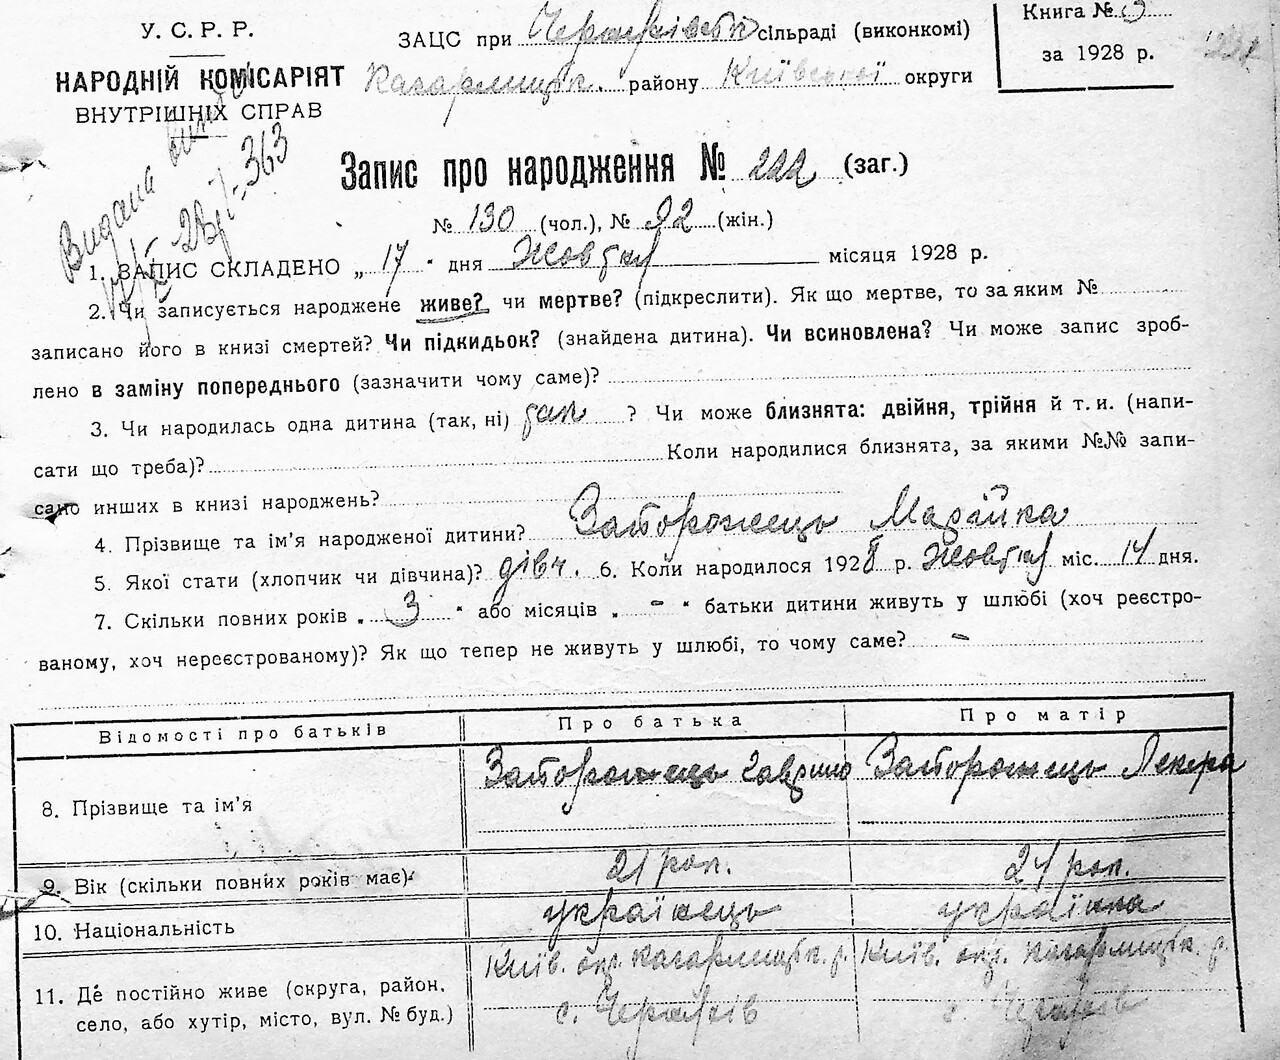 У. С. Р. Р.
НАРОДНІЙ КОМІСАРІЯТ
ВНУТРІШНІХ СПРАВ
ЗАЦС при сільраді (виконкомі)
Кагарлицьк. району Київської округи
Книга № 3
за 1928 р.
Видана
363
Запис про народження № 222 (заг.)
№ 130 (чол.), № 92 (жін.)
1. ЗАПИС СКЛАДЕНО „ 17 " дня Жовтня місяця 1928 р.
2. Чи записується народжене живе? чи мертве? (підкреслити). Як що мертве, то за яким №
записано його в книзі смертей? Чи підкидьок? (знайдена дитина). Чи всиновлена? Чи може запис зроб-
лено в заміну попереднього (зазначити чому саме)?
3. Чи народилась одна дитина (так, ні) так ? Чи може близнята: двійня, трійня й т. и. (напи-
сати що треба)? Коли народилися близнята, за якими №№ запи-
сано инших в книзі народжень?
4. Прізвище та ім'я народженої дитини? Запорожець Марійка
5. Якої стати (хлопчик чи дівчина)? дівч. 6. Коли народилося 1928 р. Жовтня міс. 14 дня.
7. Скільки повних років „ 3 " або місяців „ - " батьки дитини живуть у шлюбі (хоч реєстро-
ваному, хоч нереєстрованому)? Як що тепер не живуть у шлюбі, то чому саме? -
Відомості про батьків Про батька Про матір
8. Прізвище та ім'я Запорожець Гаврило Запорожець Лекера
9. Вік (скільки повних років має) 21 рок. 24 рок.
10. Національність українець українка
11. Де постійно живе (округа, район, Київ. окр. Кагарлицьк. р. Київ. окр. Кагарлицьк. р.
село, або хутір, місто, вул. № буд.) с. с.